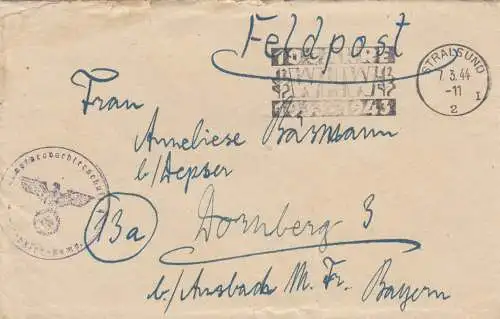 Feldpost
STRALSUND
7.3.44
-11
2 I
Frau
Anneliese Basmann
b/Hepser
13a
Dornberg 3
b./Ansbach M. Fr. Bayern